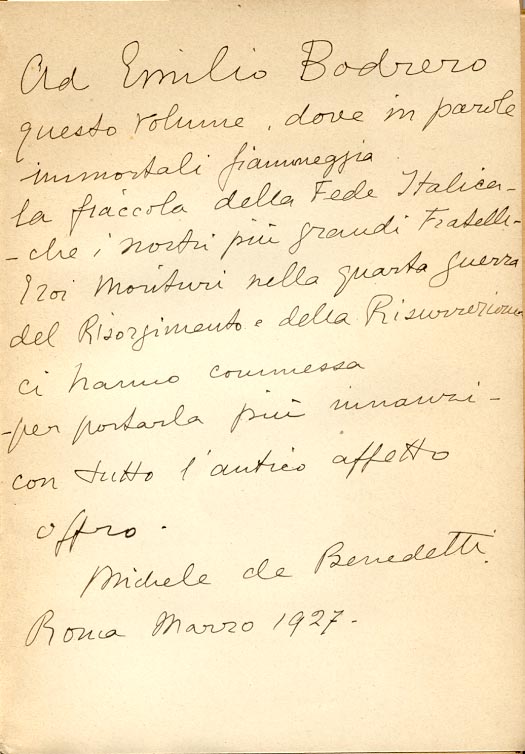 Ad Emilio Bodrero
questo volume, dove in parole
immortali fiammeggia
la fiaccola della Fede Italica-
-che i nostri più grandi Fratelli-
Eroi Morituri nella quarta guerra
del Risorgimento e della Risurrezione
ci hanno commessa
-per portarla più innanzi-
con tutto l'antico affetto
offro.
Michele de Benedetti.
Roma Marzo 1927-